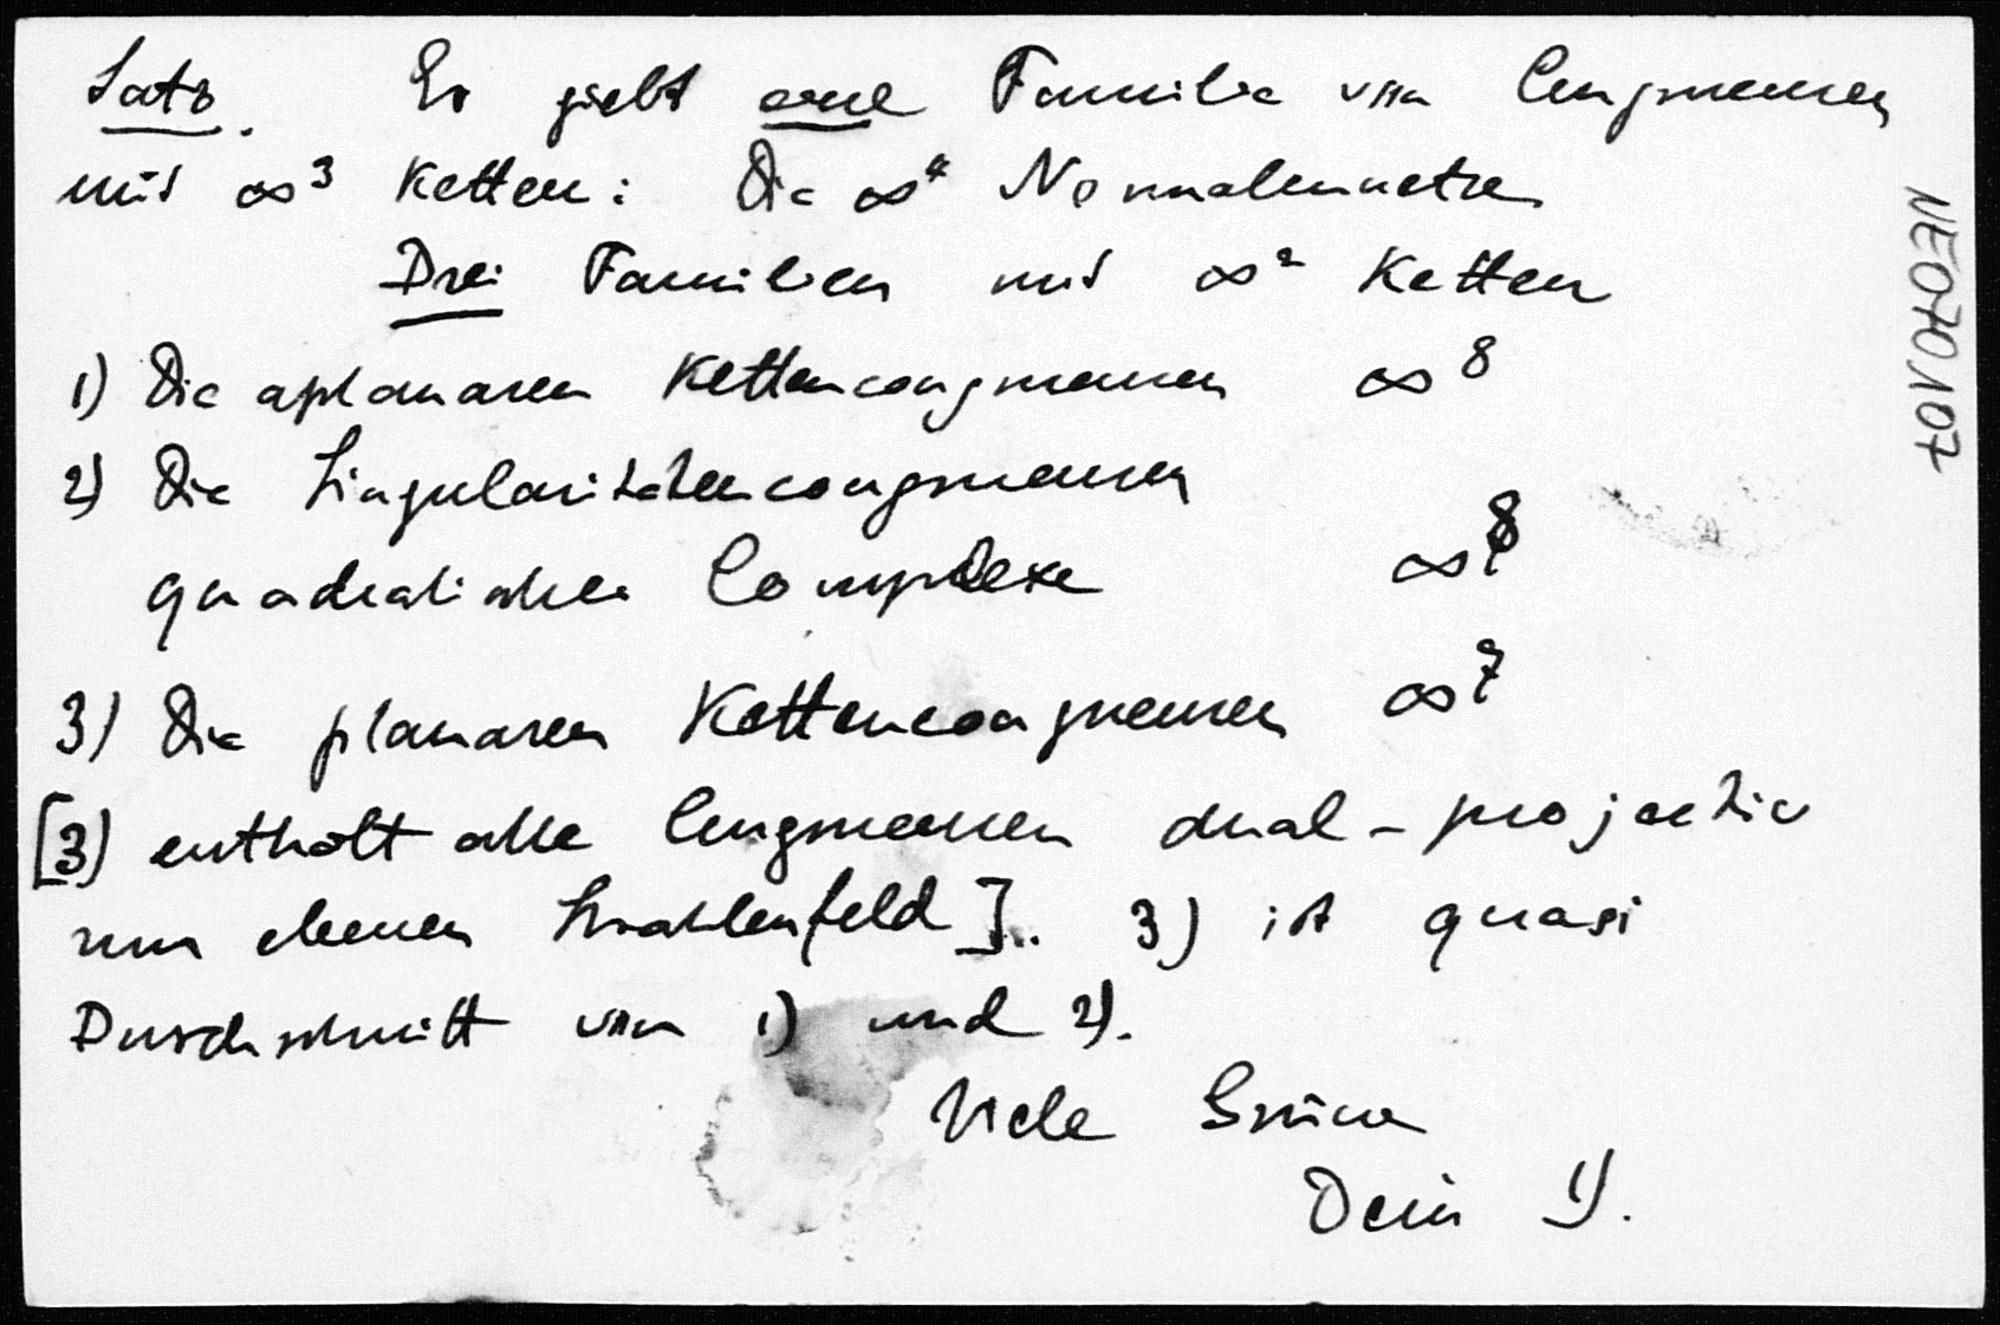 Satz. Es giebt eine Familie von Congruenzen
mit ∞³ Ketten: Die ∞⁴ Normalennetze
Drei Familien mit ∞² Ketten
1) Die aplanaren Kettencongruenzen ∞⁸
2) Die Singularitätencongruenzen
quadratischer Complexe ∞⁸
3) Die planaren Kettencongruenzen ∞⁷
[3) enthält alle Congruenzen dual-projectiv
zum ebenen Strahlenfeld]. 3) ist quasi
Durchschnitt von 1) und 2).
Viele Grüsse
Dein
NE070107